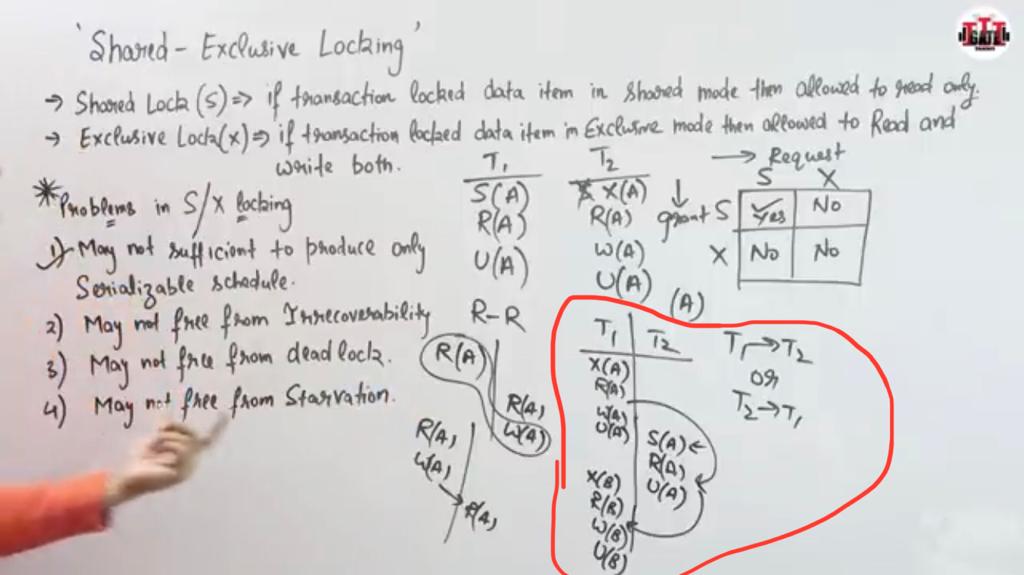 'Shared - Exclusive Locking'
→ Shared Lock (S) => if transaction locked data item in shared mode then allowed to read only.
→ Exclusive Lock(X) => if transaction locked data item in Exclusive mode then allowed to Read and
write both.
* Problems in S/X locking
1) May not sufficient to produce only
Serializable schedule.
2) May not free from Irrecoverability
3) May not free from deadlock.
4) May not free from Starvation.
T1 T2
S(A) X(A)
R(A) R(A)
U(A) W(A)
U(A)
→ Request
S X
↓ grant S Yes No
X No No
(A)
R-R
R(A)
R(A)
W(A)
R(A)
W(A)
R(A)
T1 T2
X(A)
R(A)
W(A)
U(A)
S(A)
R(A)
U(A)
X(B)
R(B)
W(B)
U(B)
T1 → T2
or
T2 → T1
GATE